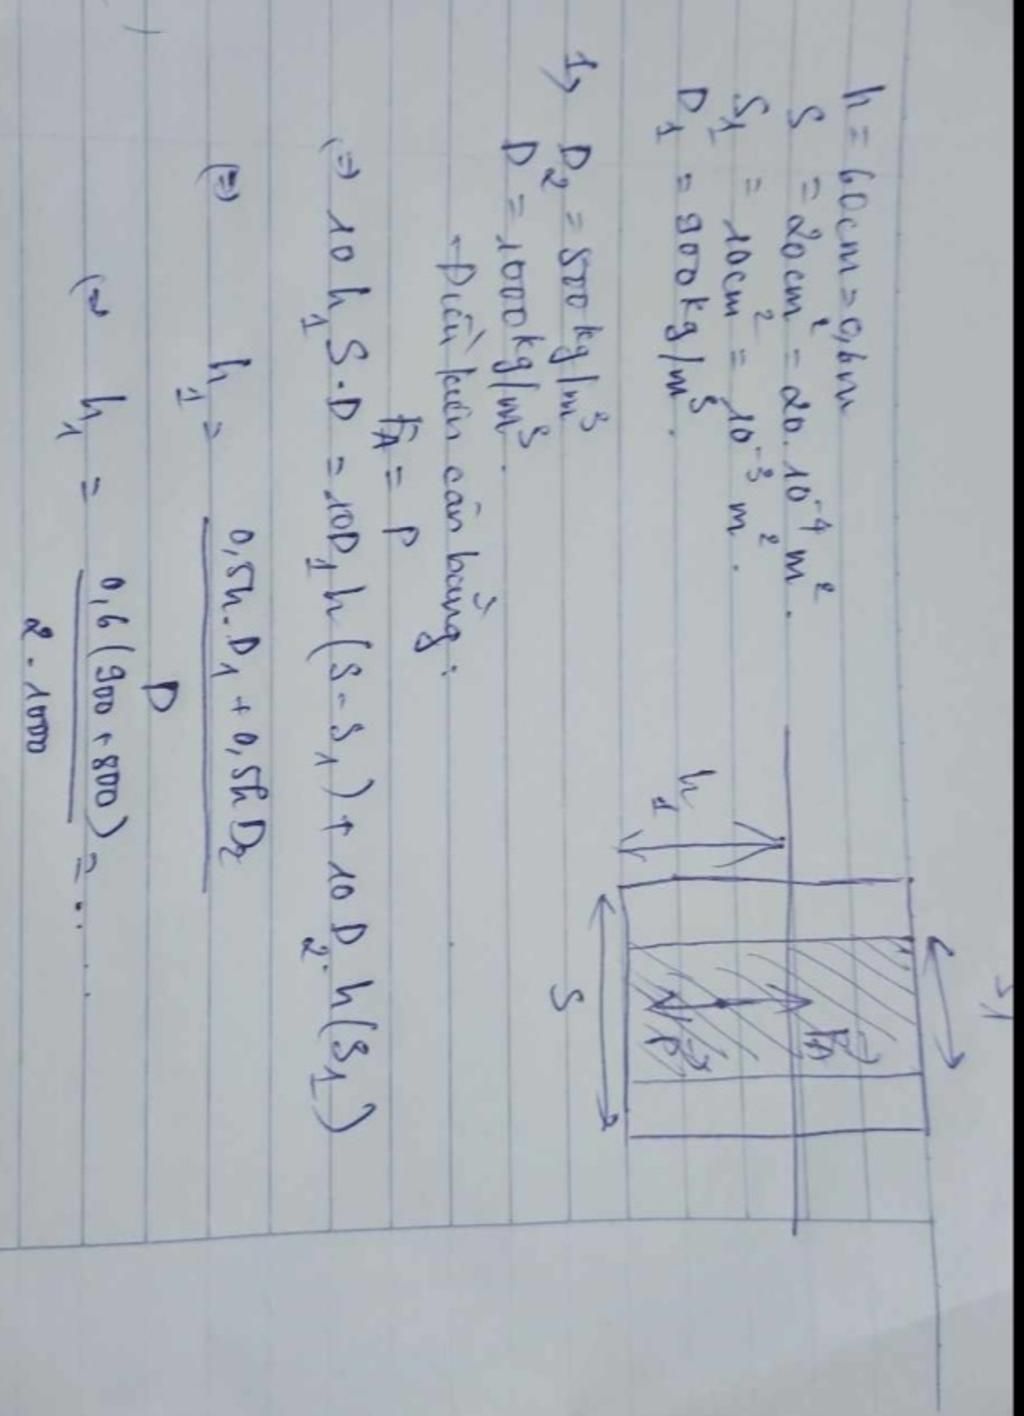 h = 60cm = 0,6m
S = 20cm² = 20.10⁻⁴m².
S₁ = 10cm² = 10⁻³m².
D₁ = 900kg/m³.
1, D₂ = 800kg/m³
D = 1000kg/m³.
- Điều kiện cân bằng:
F_A = P
(=) 10h₁S.D = 10D₁h(S-S₁) + 10D₂.h(S₁)
(=) h₁ = (0,5h.D₁ + 0,5hD₂) / D
h₁ = 0,6(900+800) / 2.1000 = .....
S₁
F_A
P
h₁
S